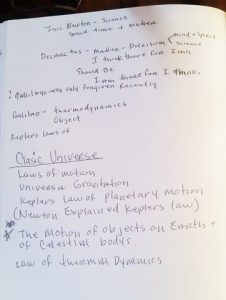 Isic Newton - Science
space time + matter
Decnactes - matter - Duleisum mind - Spirit
science
I think there for I am
Should Be
I am there for I think
! Galileyo was only Forgiven Recently
Galileo - thermodynamics
Object
Keplers laws of
Clasic Universe
Laws of motion
Univers Gravitation
Keplers Law of Planetary motion
(Newton Explained Keplers law)
The Motion of objects on Earth +
of Celestial bodys
Law of thermal Dynamics